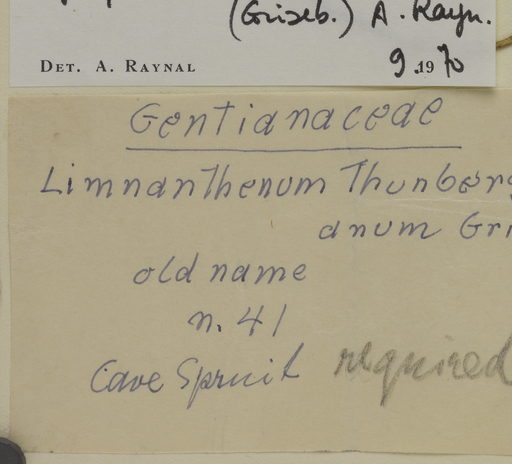 (Griseb.) A. Rayn.
DET. A. RAYNAL 9.1970
Gentianaceae
Limnanthenum Thunberg
anum Gri
old name
n. 41
Cave Spruit required